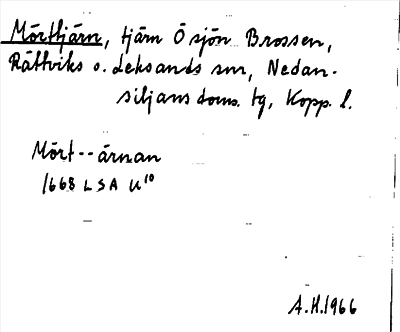 Mörttjärn, tjärn Ö sjön Brossen,
Rättviks o. Leksands snr, Nedan-
siljans doms. tg, Kopp. l.
Mört--ärnan
1668 LSA U¹⁰
A.H. 1966